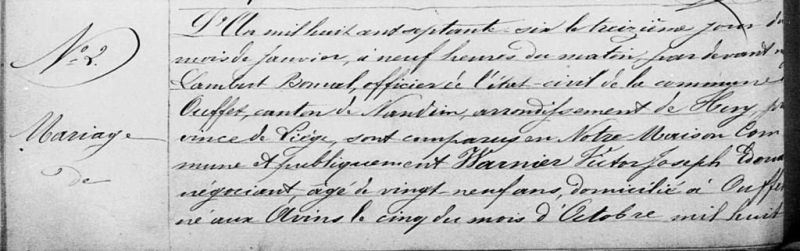 N.º 2.
Mariage
de
L'An mil huit cent septante six le treizième jour du
mois de Janvier, à neuf heures du matin, par devant
Lambert officier de l'état-civil de la commune
Ouffet, canton de Nandrin, arrondissement de Huy, pro
vince de Liége, sont comparus en Notre Maison Com
mune et publiquement Warnier Victor Joseph Edou
négociant agé de vingt neuf ans, domicilié à Ouffet
né aux Avins le cinq du mois d'Octobre mil huit